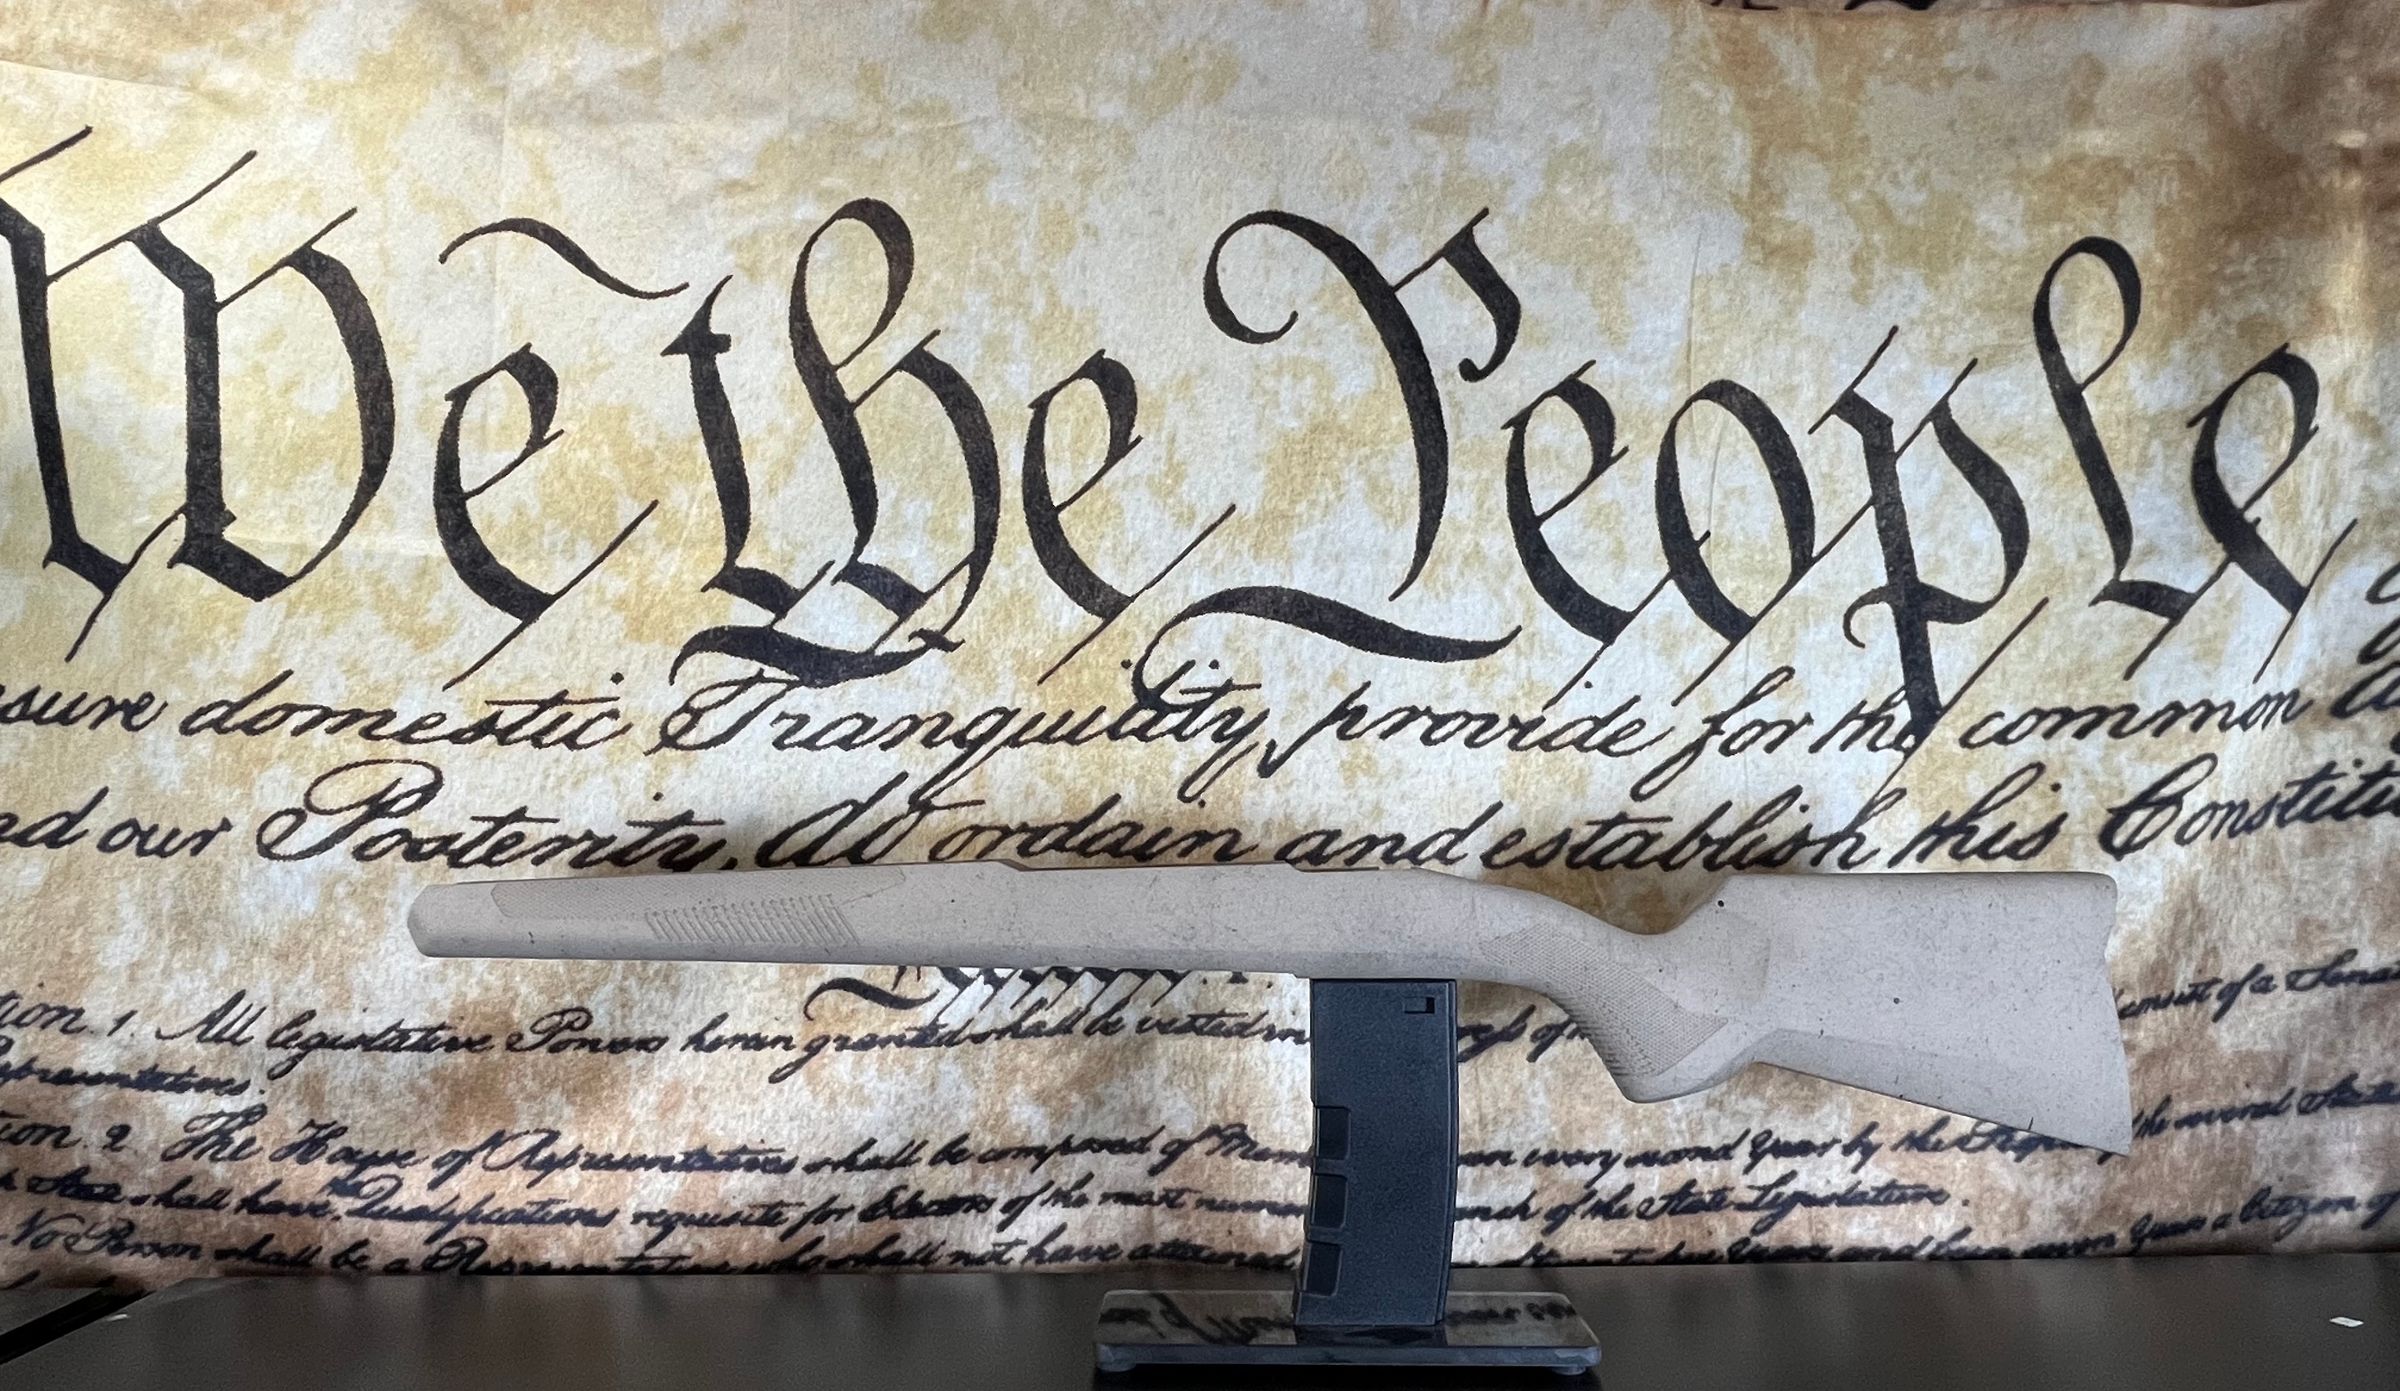 We the People
sure domestic Tranquility, provide for the common
our Posterity, do ordain and establish this Constitu
tion. 1. All legislative Powers herein granted shall be vested in of consist of a Senat
Representatives.
tion. 2. The House of Representatives shall be composed of Mem every second Year by the People of the several States
State shall have the Qualifications requisite for Electors of the most numer anch of the State Legislature.
No Person shall be a Representative who shall not have attained Years and been seven Years a Citizen of